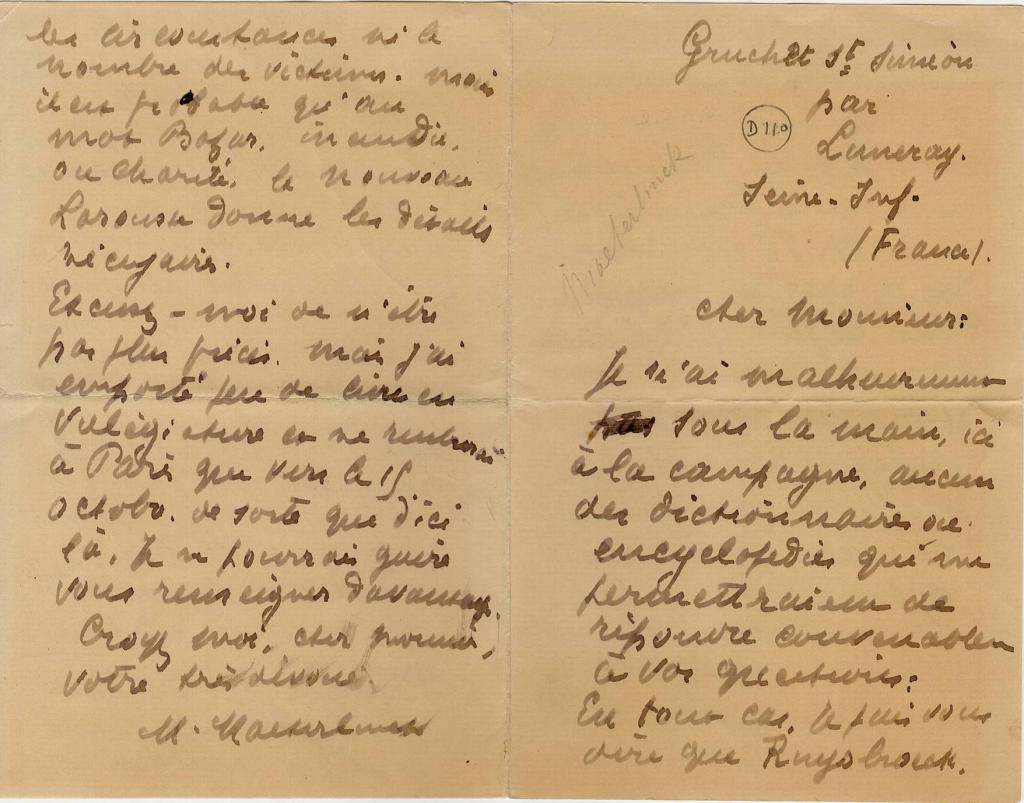 Gruchet St Siméon
par
Luneray.
Seine-Inf.
(France).
D 110
Maeterlinck
Cher Monsieur:
Je n'ai malheureusement
sous la main, ici
à la campagne, aucun
des dictionnaires ou
encyclopédies qui me
permettraient de
répondre convenablem
à vos questions:
En tous cas, je puis vous
dire que Ruysbroeck.
les circonstances ni le
nombre des victimes. mais
il est probable qu'au
mot Bazar, incendie,
ou Charité, le nouveau
Larousse donne les détails
nécessaires.
Excusez-moi de n'être
pas plus précis. mais j'ai
emporté peu de livres en
villégiature et ne rentrerai
à Paris que vers le 15
octobre. de sorte que d'ici
là, je ne pourrais guère
vous renseigner davantage.
Croyez moi, cher monsieur,
votre très dévoué
M. Maeterlinck